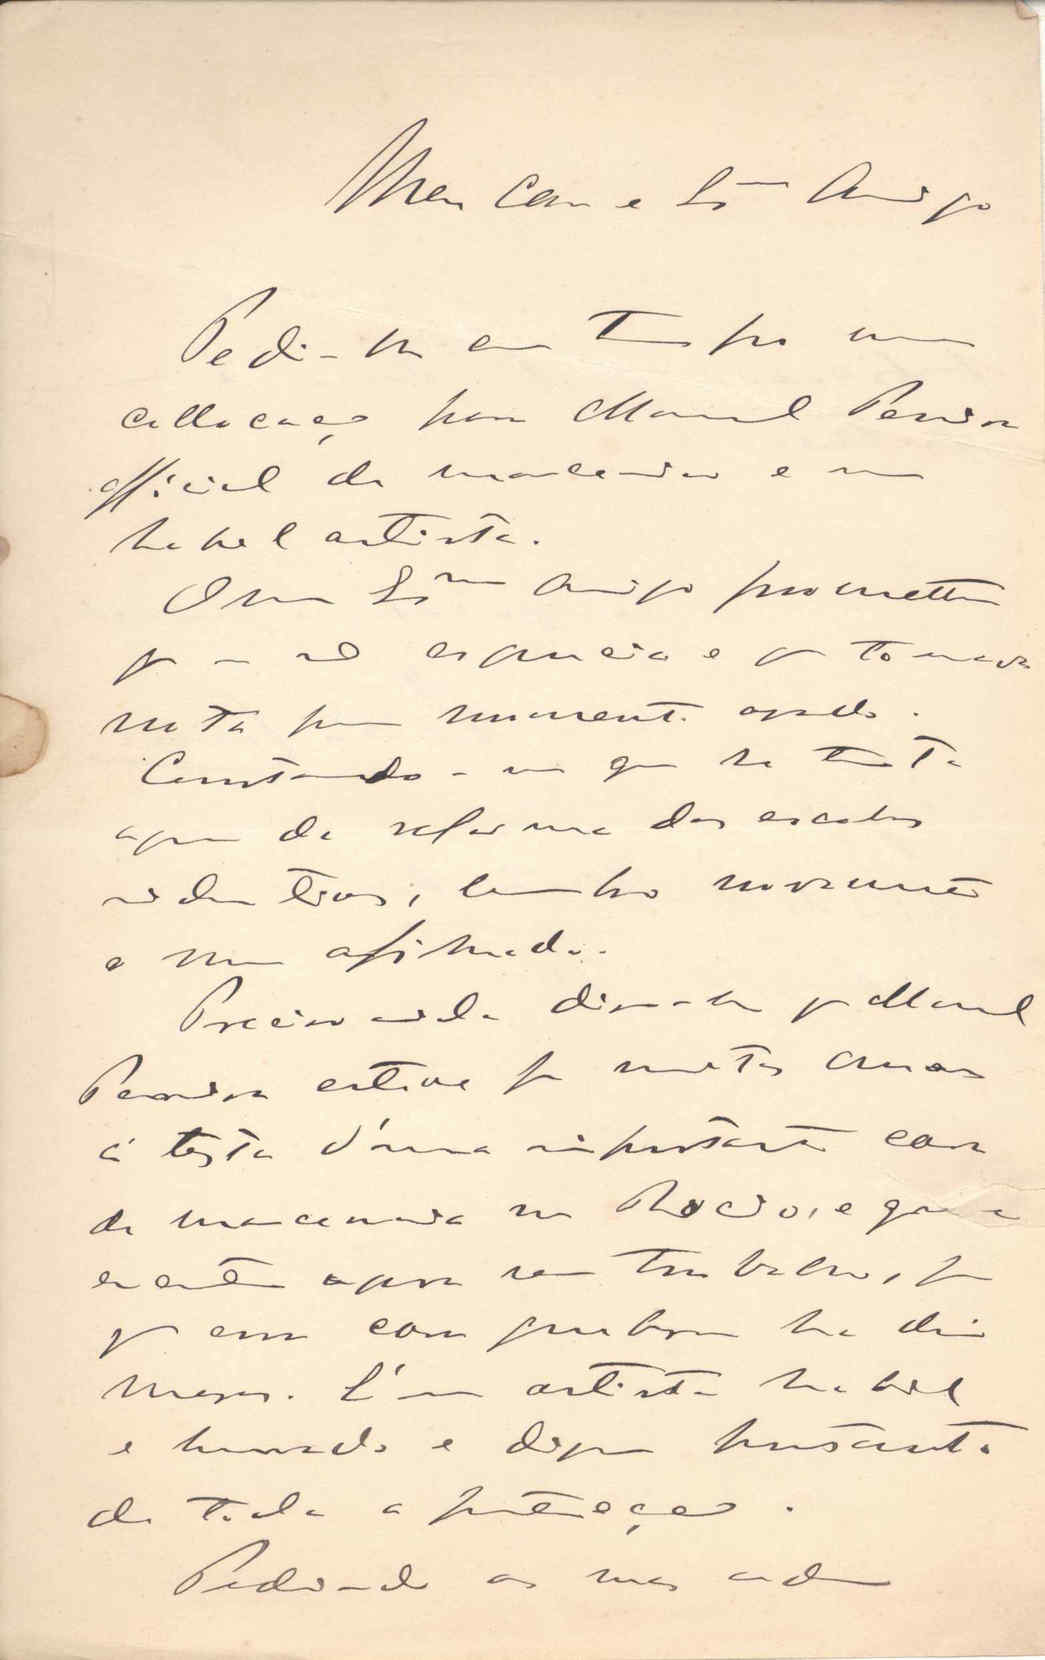 Meu Caro e Ex.mo Amigo
Pedi-lhe em tempo uma
collocação para Manuel Pereira
official de marceneiro e um
habil artista.
O meu Ex.mo Amigo prometteu
q se não esquecia e q tomava
nota para momento opp.do.
Constando-me que se trata
agora da reforma das escolas
industriaes, lembro novamente
o meu afilhado.
Preciso ainda dizer-lhe q Manuel
Pereira esteve por muitos annos
á testa d'uma importante casa
de marcenaria no Rocio, e que
está agora sem trabalho, por
q essa casa quebrou ha dois
mezes. É um artista habil
e honrado e digno portanto
de toda a protecção.
Pedindo as suas ordens